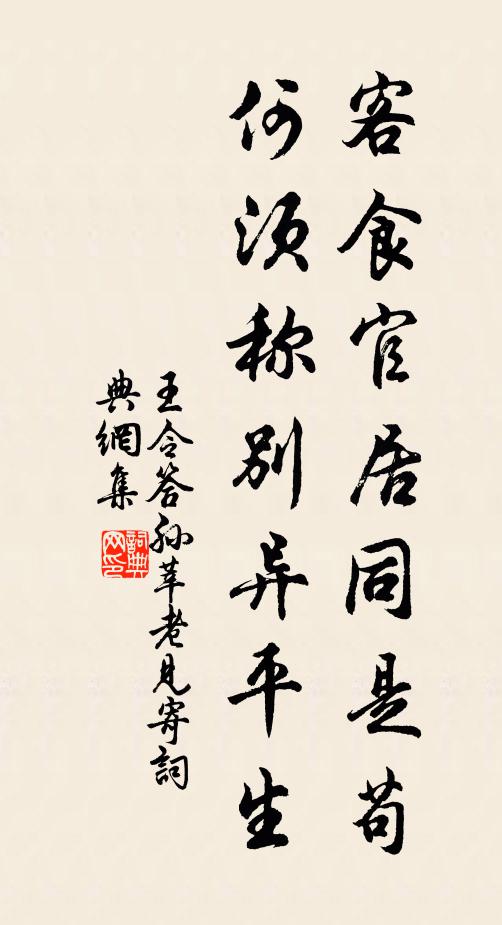 客食官居同是苟
何须称别异平生
王令答孙莘老见寄詞
典網集
詞典
网印